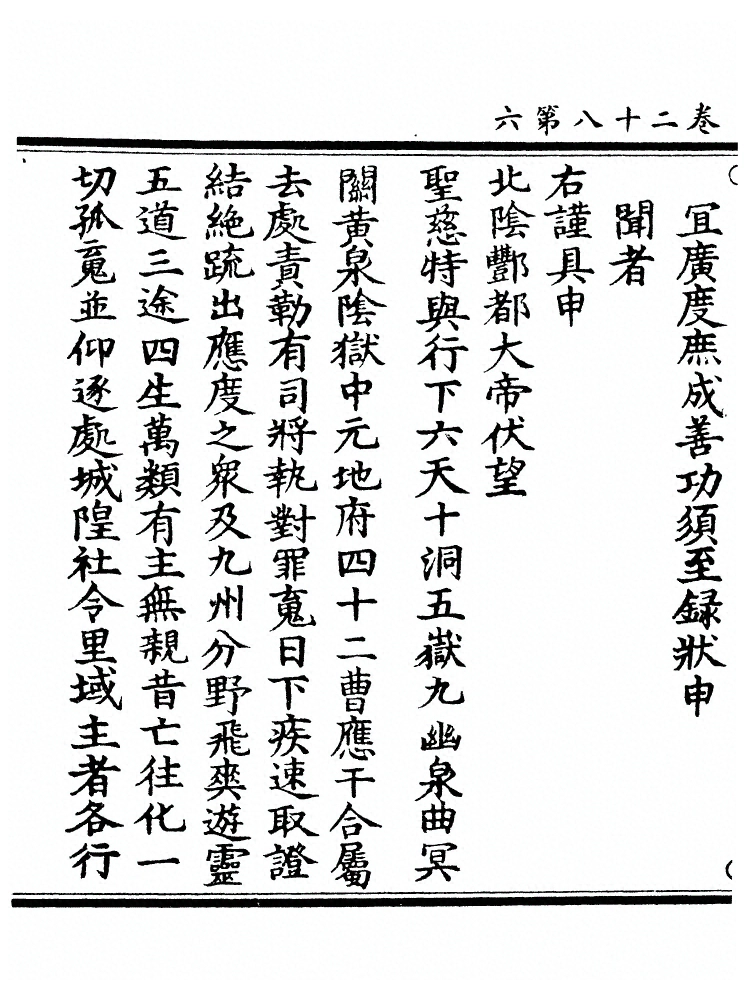 卷二十八第六
宜廣度庶成善功須至錄狀申
聞者
右謹具申
北陰酆都大帝伏望
聖慈特與行下六天十洞五嶽九幽泉曲冥
關黃泉陰獄中元地府四十二曹應干合屬
去處責勒有司將執對罪䰟日下疾速取證
結絶䟽出應度之衆及九州分野飛爽遊靈
五道三途四生萬類有主無親昔亡往化一
切孤䰟並仰逐處城隍社令里域主者各行